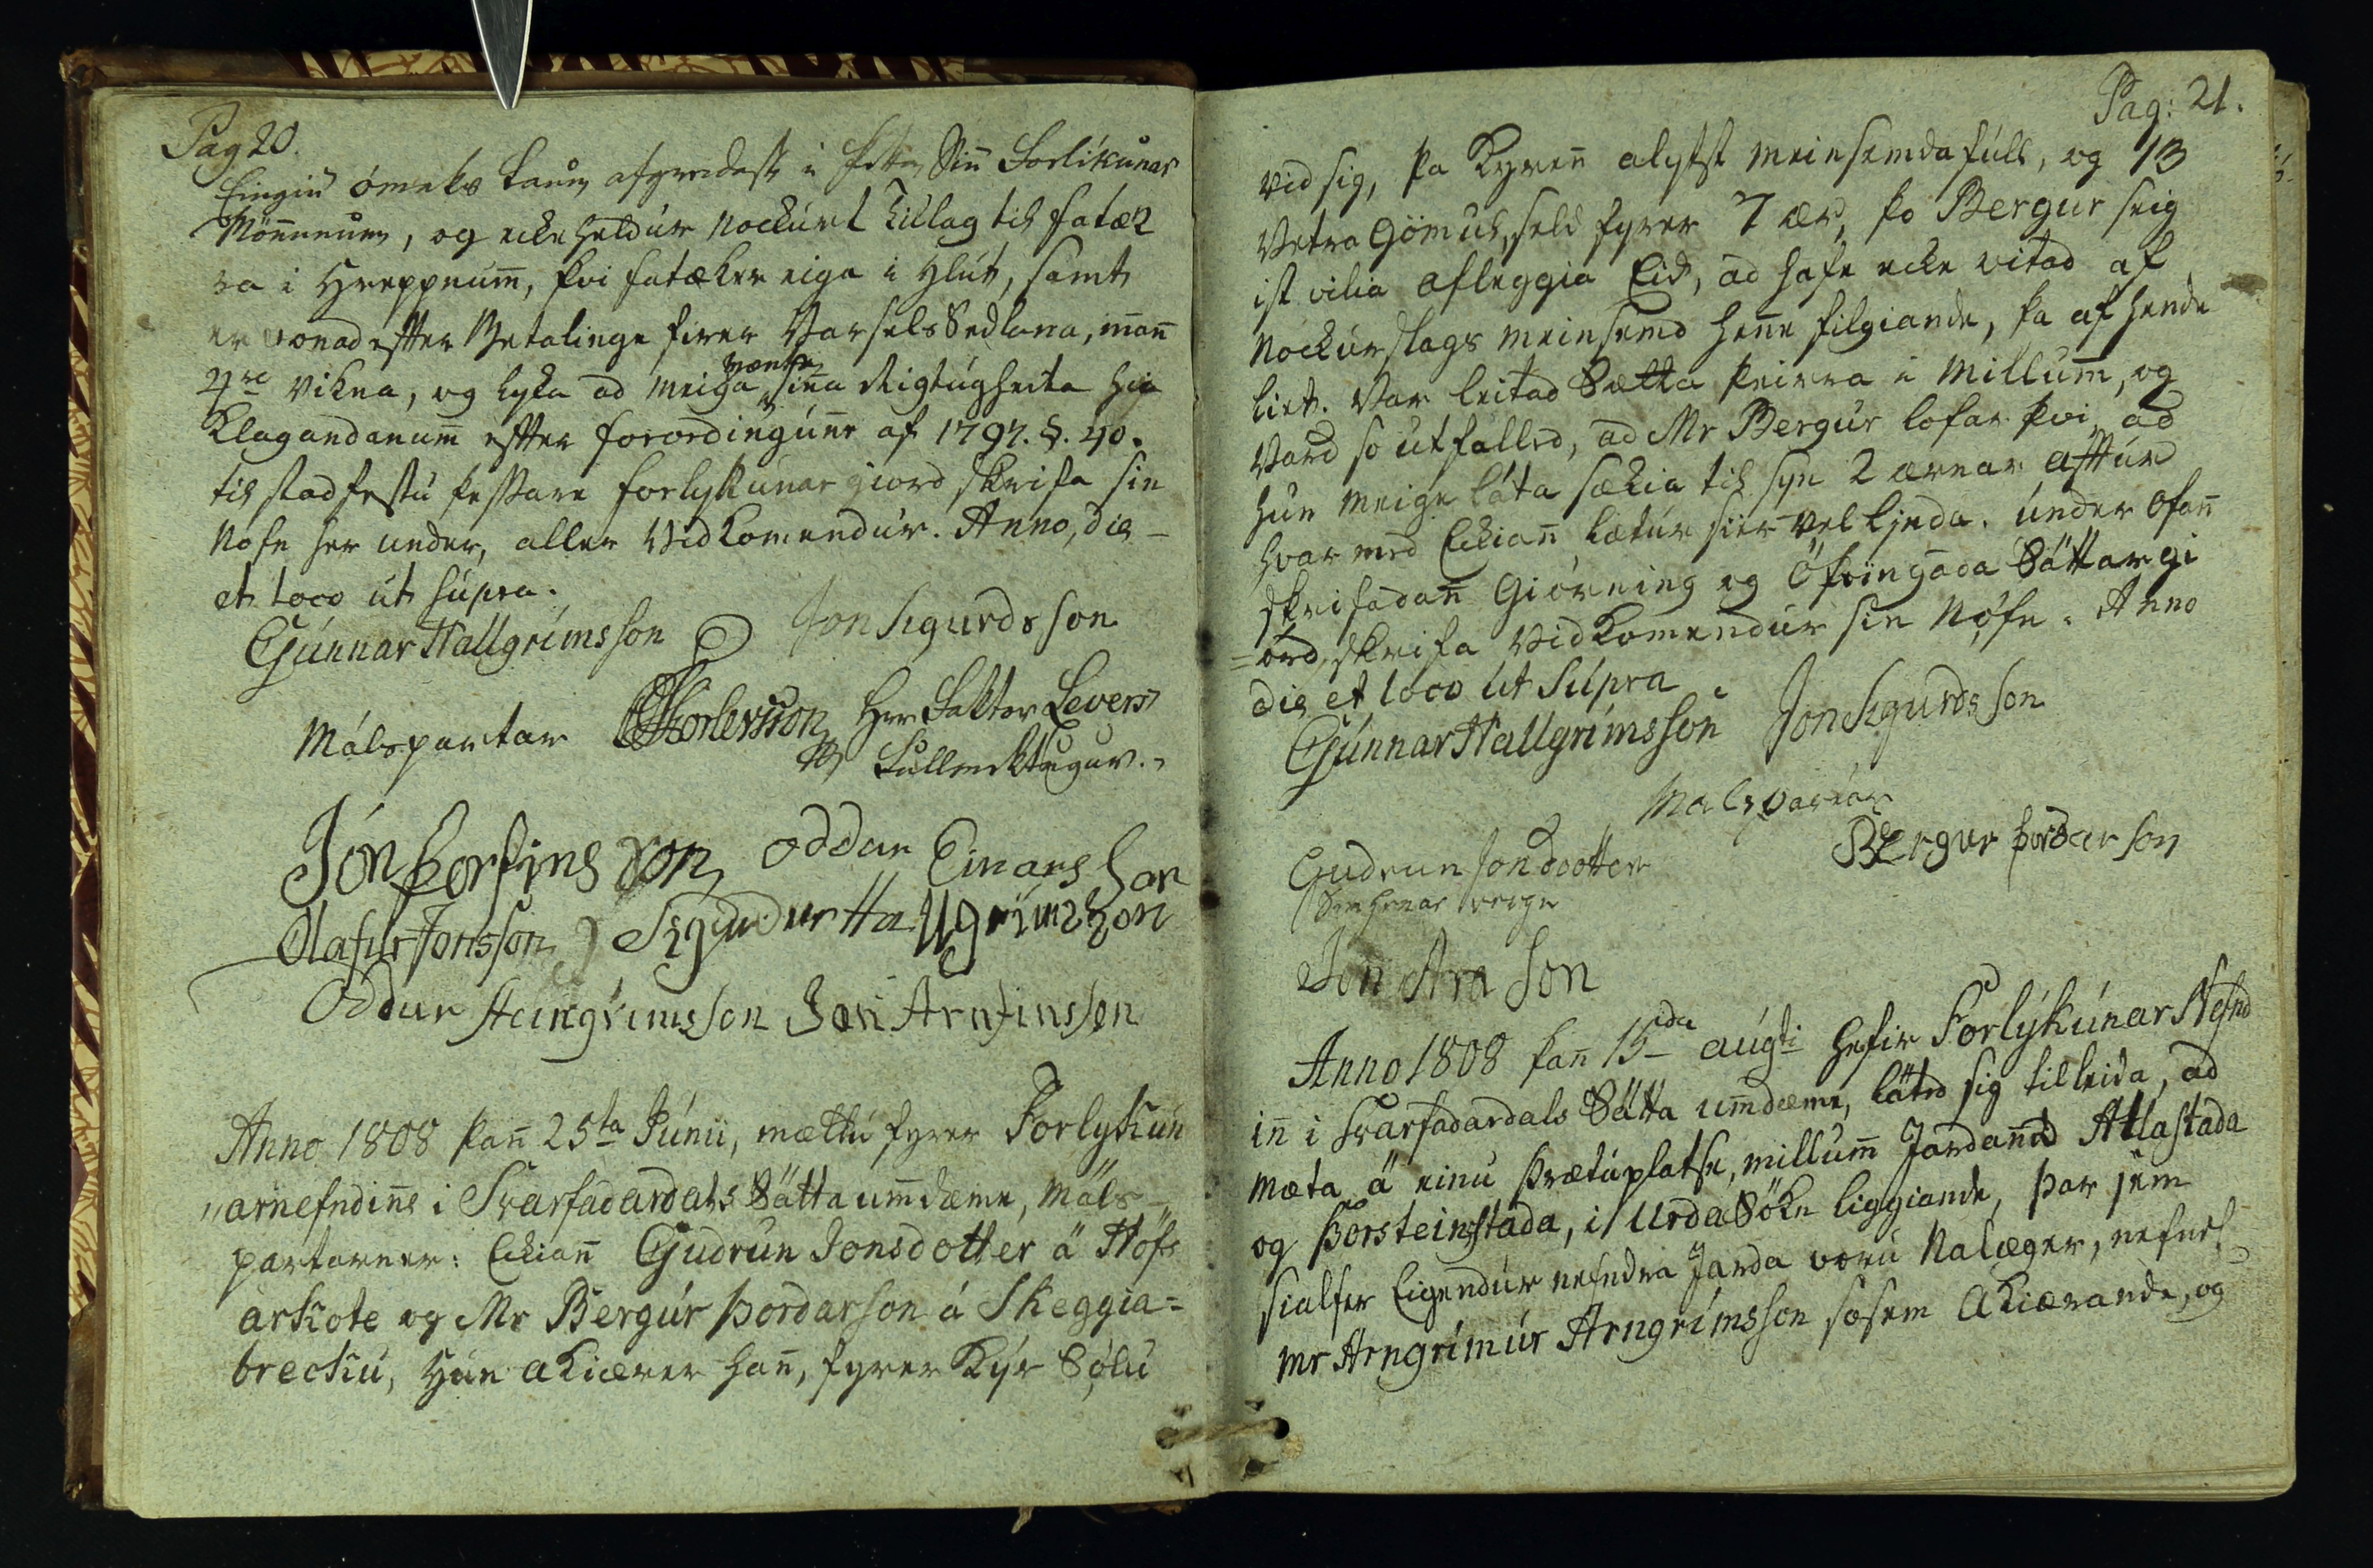 Pag 20.
Eingin ómaks laun afgreidast i þetta Sinn Forlikunar
Mönnunum, og ecke heldur nockurt Tillag til fatæk
ra i Hreppnum̄, þvi fatækir eiga i Hlut, samt
er vonad efter Betalinge firer Varsels Sedlana, innan̄
4ra vikna, og lika ad meiga vænta sinna Rigtugheita hia
Klagandanum̄ efter forordningunne af 1797. §. 40.
til stadfestu þessare forlykunar giord skrifa sin
Nofn her under, aller Vidkomendur. Anno, die
et loco ut supra.
Gunnar Hallgrímsson Jon Sigurdsson
Málspartar Thorlevsson Herr Faktor Levers
Fullmektugur.
Jón Þorfinsson Oddur Einarsson
Olafur Jonsson Sigurdur Hallgrimsson
Oddur Steingrimsson Jón Arnfinsson
Anno 1808 þan̄ 25ta Júnii, mættu fyrer Forlykun
„arnefndin̄e i Svarfadardals Sätta um̄dæme, Mäls-
partarner: Eckian̄ Gudrun Jonsdotter ä Höfs
árkote og Mr Bergúr Þordarson á Skeggia=
breckú, Hún akiærer han̄, fyrer Kýr Sölu
Pag: 21.
vid sig, þa Kyren̄ alytst meinsemdafúll, og 13
Vetra Gömul, seld fyrer 7 ær, þo Bergur seig
ist vilia afleggia Eid, ad hafe ecke vitad af
Nockurslags meinsemd hen̄e filgiande, þa af hende
liet. Var leitad Sætta þeirra i Millum̄, og
Vard so utfalled, ad Mr Bergúr lofar þvi, ad
hun meige láta sækia til syn 2 ærnar afttur
hvar med Eckian̄ lætúr sier vel linda. únder ofan̄
skrifadan̄ Giörning og Óþvingada Sättargi
=örd, skrifa Vidkomendur sin Nöfn. Anno
die et loco ut Súpra.
Gúnnar Hallgrímsson Jon Sigurdsson
Malspartar
Gudrun Jonsdootter Bergur Þordarson
Jón Arason
Anno 1808 þan̄ 15da aúgti hefir Forlýkúnar Nefnd
in̄ i Svarfadardals Sätta um̄dæme, láted sig tilleida, ad
mæta ä einu Þrætúplatse, millum̄ Jardan̄a Atlastada
og Þorsteinsstada, i Urda Sökn liggiande, þar sem
sialfer Eigendúr nefndra Jarda voru Nalæger, nefnel
mr Arngrímúr Arngrímsson sosem Akiærande, og